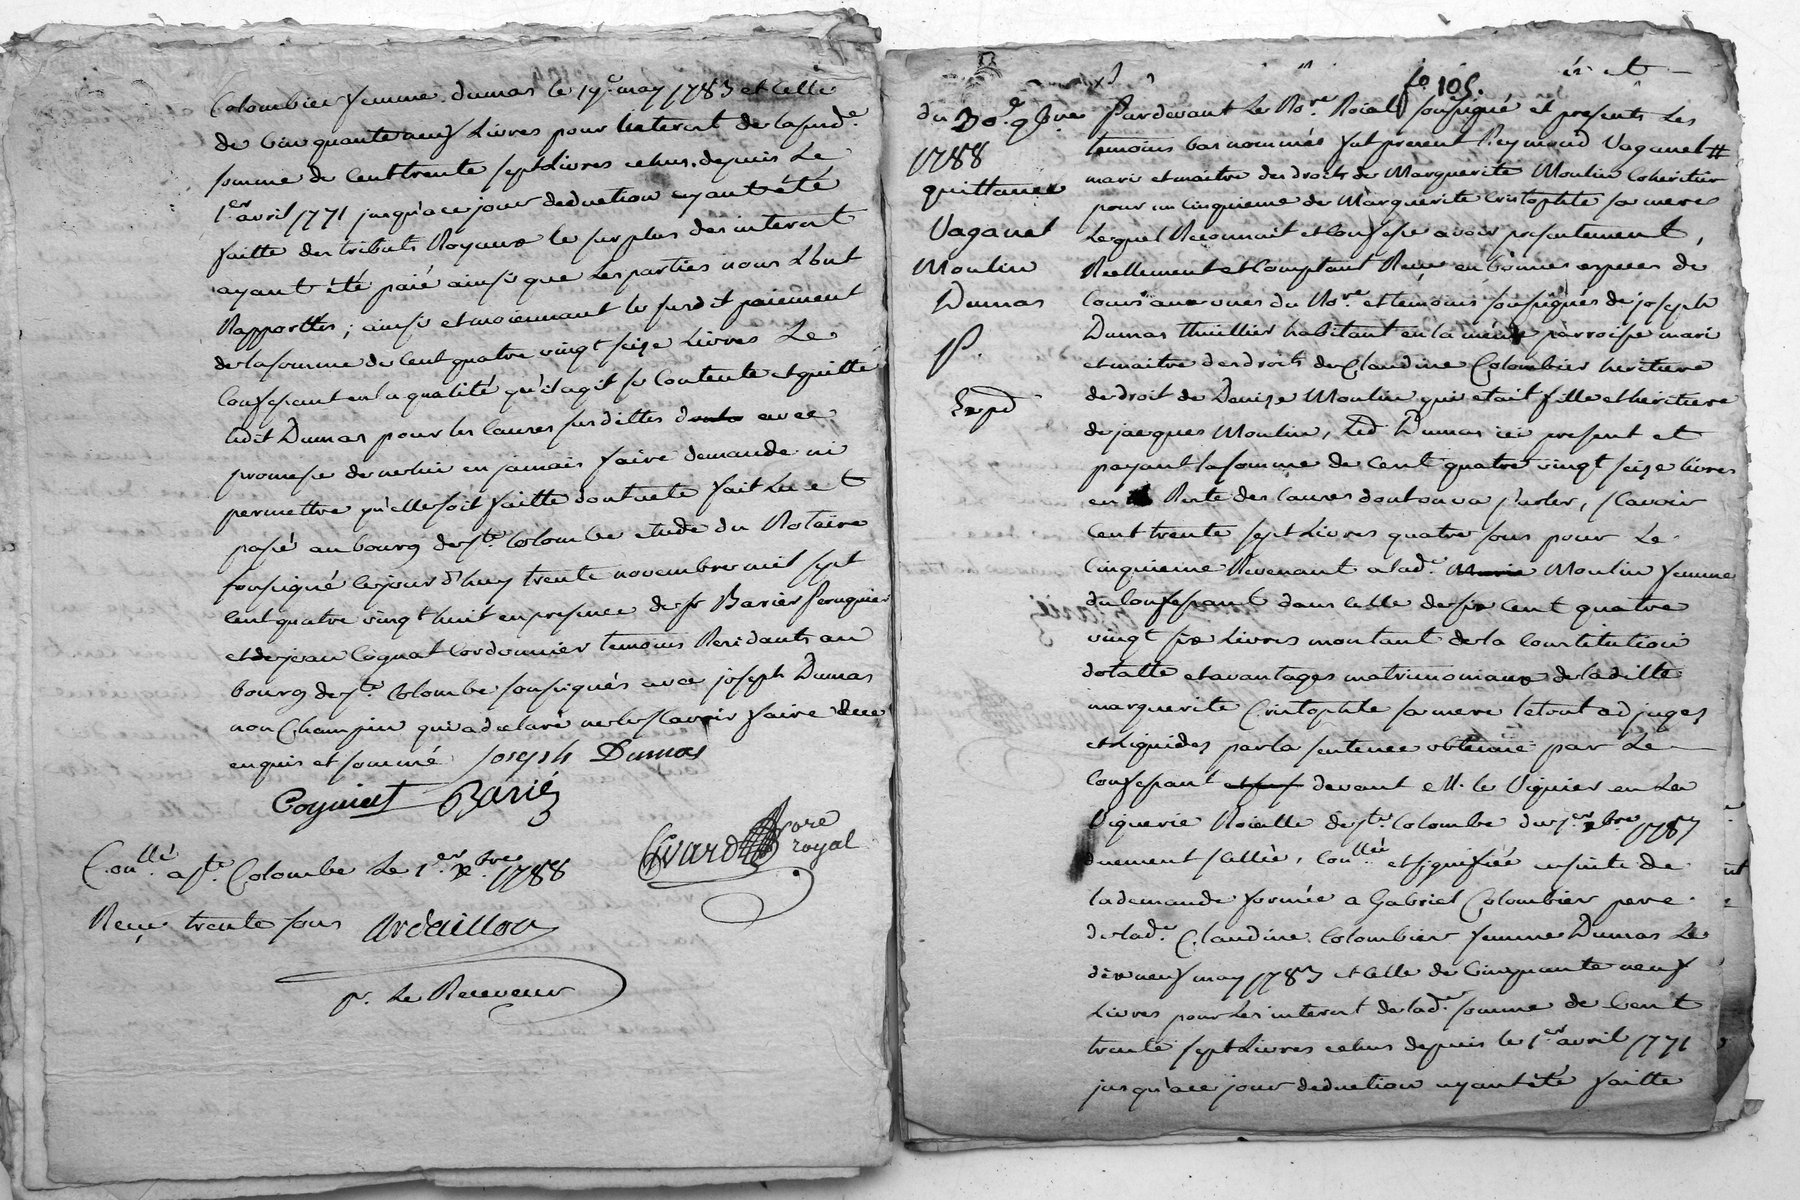 Colombier femme dumas le 19e. may 1783 et celle
de cinquante neuf Livres pour linterest de lasusde.
somme de cent trente sept Livres echus depuis Le
1er avril 1771 jusqu'a ce jour deduction ayant été
faitte des tributs Royaux le surplus des interest
ayant été paié ainsi que les parties nous L'ont
Rapporttés; ainsi et moiennant le susdit paiement
de la somme de Cent quatre vingt seize Livres Le
Confessant en la qualité qu'il agit se Contente et quitte
ledit Dumas pour les Causes susdittes avec
promesse de ne lui en jamais faire demande ni
permettre qu'elle soit faitte dont acte fait Lu et
passé au bourg de ste. Colombe etude du Notaire
soussigné lejour d'huy trente novembre mil sept
cent quatre vingt huit en presence de sr Barier Peruquier
et de jean Cognat Cordonnier temoins Residants au
bourg de ste. Colombe soussignés avec joseph Dumas
non Champin qui a declaré ne le sçavoir faire de ce
enquis et sommé Joseph Dumas
Cogniat Barié
Evard nore
royal
Conllé. a ste. Colombe Le 1er. xbre. 1788
Reçu trente sous Ardaillon
pr. Le Receveur
fo 105.
du 30e. 9bre
1788
quittance
Vaganet
Moulin
Dumas
P.
Expd
Pardevant Le Nore. Roial soussigné et presents Les
temoins bas nommés fut present Reymond Vaganet #
mari et maitre des droits de Marguerite Moulin Coheritier
pour un cinquieme de Marguerite Cristophte sa mere
Lequel Reconnait et Confesse avoir presentement,
Reellement et Comptant Reçu en bonnes especes de
Cours aux vues du Nore. et temoins soussignés de joseph
Dumas thuillier habitant en la même parroisse mari
et maitre des droits de Claudine Colombier heritiere
de droit de Denize Moulin qui etait fille et heritiere
de jacques Moulin, Led Dumas ici present et
payant la somme de Cent quatre vingt seize livres
en Reste des Causes dont on va parler, scavoir
Cent trente sept Livres quatre sous pour Le
Cinquieme Revenant a lade. Marie Moulin femme
du Confessant dans celle de six cent quatre
vingt six Livres montant de la Constitution
dotalle et avantages matrimoniaux de laditte
marguerite Cristophte sa mere letout adjugés
et Liquidés par la sentence obtenue par Le
Confessant devant M. le Viguier en La
Viguerie Roialle de ste. Colombe du 1er. xbre 1787
duement scellée, Conllée et signifiée ensuite de
la demande formée a Gabriel Colombier pere
de lade. Claudine Colombier femme Dumas Le
dix neuf may 1783 et celle de Cinquante neuf
Livres pour les interest de lade. somme de Cent
trente sept Livres echus depuis le 1er avril 1771
jusqu'a ce jour deduction ayant été faitte